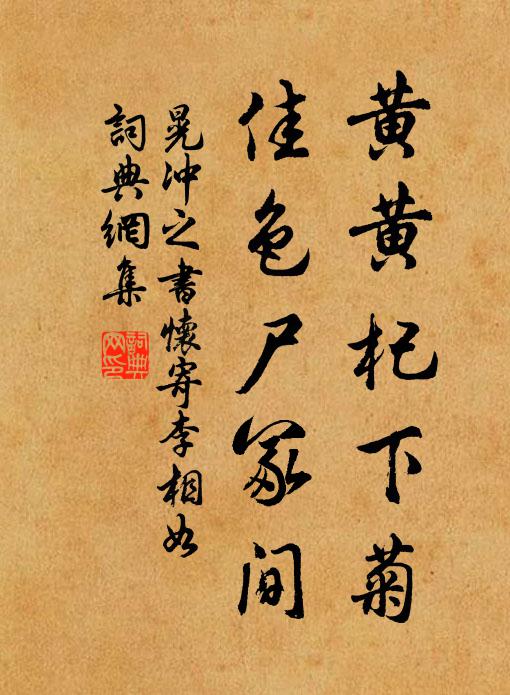 黄黄杞下菊
佳色尸冢间
晁冲之书怀寄李相如
詞典網集
詞典网印